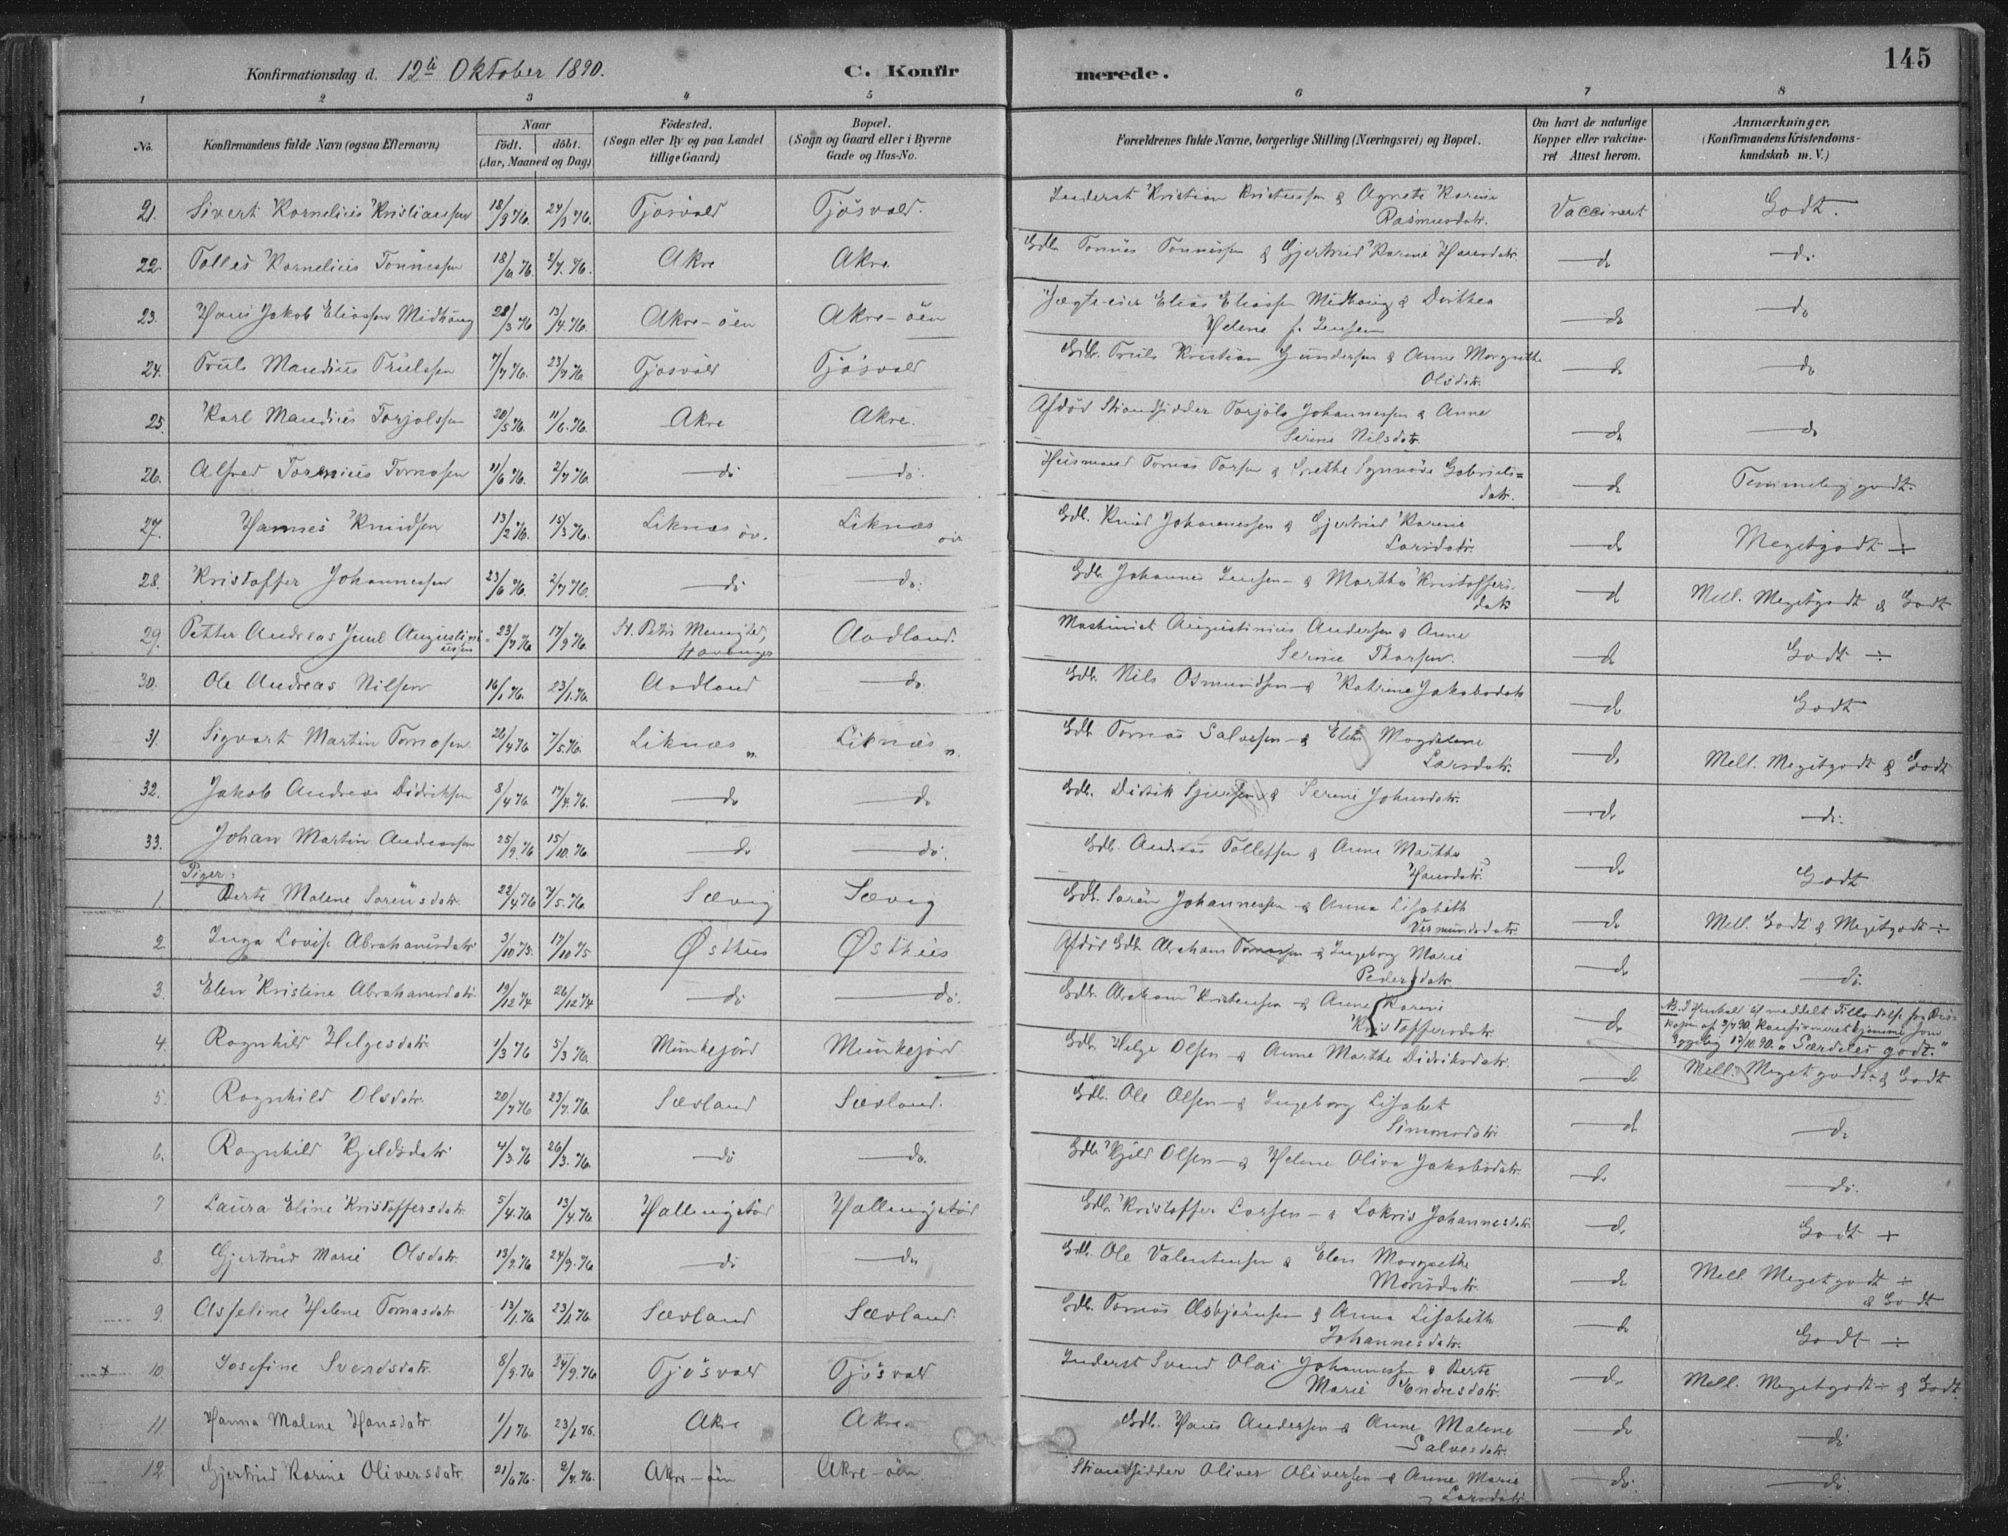 Konfirmationsdag d. 12te Oktober 1890. C. Konfirmerede. 145
1 2 3 4 5 6 7 8
No. Konfirmandens fulde Navn (ogsaa Efternavn) Naar födt. döbt. (Aar, Maaned og Dag) Födested. (Sogn eller By og paa Landet tillige Gaard) Bopæl. (Sogn og Gaard eller i Byerne Gade og Hus-No. Forældrenes fulde Navne, borgerlige Stilling (Næringsvei) og Bopæl. Om havt de naturlige Kopper eller vaccineret Attest herom. Anmærkninger. (Konfirmandens Kristendomskundskab m. V.)
21. Sivert Kornelius Kristiansen 18/3 76 24/9 76. Tjøsvold Tjøsvold. Inderst Kristian Kristensen & Agnete Karine Rasmusdatr. Vaccineret Godt.
22. Tolles Kornelius Tønnessen 18/6 76. 2/7. 76. Akre Akre. Gdb. Tønnes Tønnessen & Gjertrud Karine Hansdatr. do do
23. Hans Jakob Eliassen Midhaug 28/3 76 13/4. 76. Akre-öen Akre-öen Jægteeier Elias Eliassen Midhaug & Dorthea Helene f. Jensen do do
24. Truls Mandius Trulssen 7/7 76. 23/7 76 Tjøsvold Tjøsvold Gdb. Truls Kristian Gundersen & Anne Margrethe Olsdatr. do do
25. Karl Mandius Torjolssen 20/5 76. 11/6. 76. Akre Akre. Afdød Strandsidder Torjols Johannessen & Anne Serine Nilsdatr. do do
26. Alfred Tornius Tornasen 11/6 76. 2/7 76. do do. Husmand Tornas Torsen & Grethe Synnøve Gabrielsdatr. do Temmelig godt.
27. Hannes Knudsen 13/2 76. 15/3 76. Liknæs öv. Liknæs öv Gdb. Knud Johannessen & Gjertrud Karine Larsdatr. do Megetgodt ÷
28. Kristoffer Johannessen 23/6 76. 2/7 76. do do. Gdb. Johannes Jensen & Martha Kristoffersdatr do Mell. Megetgodt & Godt
29. Petter Andreas Juul Augustiniussen 23/7 76 17/9 76. St. Petri Menighed, Stavanger Aadland. Maskinist Augustinius Andersen & Anne Serine Thorsen. do Godt ÷
30. Ole Andreas Nilsen 16/1 76. 23/1. 76. Aadland do. Gdb. Nils Osmundsen & Katrine Jakobsdatr do Godt
31. Sigvart Martin Tornasen. 26/4 76 7/5 76. Liknæs n. Liknæs n. Gdb Tornas Salvesen & Elen Magdalene Larsdatr. do Mell. Megetgodt & Godt
32. Jakob Andreas Didriksen 8/4 76 17/4. 76. do do Gdb. Didrik Sjursen & Serine Johnsdatr. do do.
33. Johan Martin Andreassen 25/9. 76 15/10. 76. do do. Gdb. Andreas Tollefsen & Anne Martha Hansdatr. do Godt
Piger:
1. Berte Malene Sørensdatr. 22/4 76 7/5. 76. Sævig Sævig Gdb. Søren Johannessen & Anna Lisabeth Vermundsdatr. do Mell. Godt & Megetgodt ÷
2. Inga Lovise Abrahamsdatr 3/10 75. 17/10 75 Østhus Østhus Afdød Gdb. Abraham Tornassen & Ingeborg Marie Pedersdatr. do do.
3. Elen Kristine Abrahamsdatr. 19/12 74 26/12 74 do do. Gdb. Abraham Kristensen & Anne Karine Kristoffersdatr. do NB. I Henhold til meddelt Tilladelse fra Biskopen af 3/9 90. konfirmeret hjemme som sygelig 17/10. 90. "Særdeles godt."
4. Ragnhild Helgesdatr. 1/3 76 5/3 76. Munkejord Munkejord Gdb. Helge Olsen & Anne Marthe Didriksdatr. do Mell. Megetgodt & Godt
5. Ragnhild Olsdatr. 20/7 76 23/7. 76. Sævland Sævland. Gdb. Ole Olsen & Ingeborg Lisabet Simonsdatr. do do
6. Ragnhild Kjeldsdatr 4/3. 76 26/3. 76. do do. Gdb. Kjeld Olsen & Helene Oliva Jakobsdatr. do do.
7 Laura Eline Kristoffersdatr. 5/4. 76 13/4. 76 Hallingstad Hallingstad Gdb. Kristoffer Larsen & Lakris Johannesdatr do Godt +
8. Gjertrud Marie Olsdatr. 13/9. 76 24/9. 76 do do Gdb. Ole Valentinsen & Elen Margrethe Monsdatr. do Mell Megetgodt ÷ & Godt
9. Asseline Helene Tornasdatr 13/1. 76 23/1. 76 Sævland Sævland. Gdb. Tornas Asbjørnsen & Anna Lisabeth Johannesdatr. do Godt ÷
+ 10. Josefine Svendsdatr. 8/9. 76 24/9. 76 Tjøsvold Tjøsvold Inderst Svend Olai Johannessen & Berte Marie Endresdatr. do Mell. Megetgodt ÷ & Godt.
11. Hanna Malene Hansdatr. 1/1 76. 23/1 76. Akre Akre Gdb. Hans Andersen & Anne Malene Salvesdatr. do do
12. Gjertrud Karine Oliversdatr. 21/6 76. 2/7. 76. Akre-öen Akre-öen Strandsidder Oliver Oliversen & Anne Marie Larsdatr. do. do